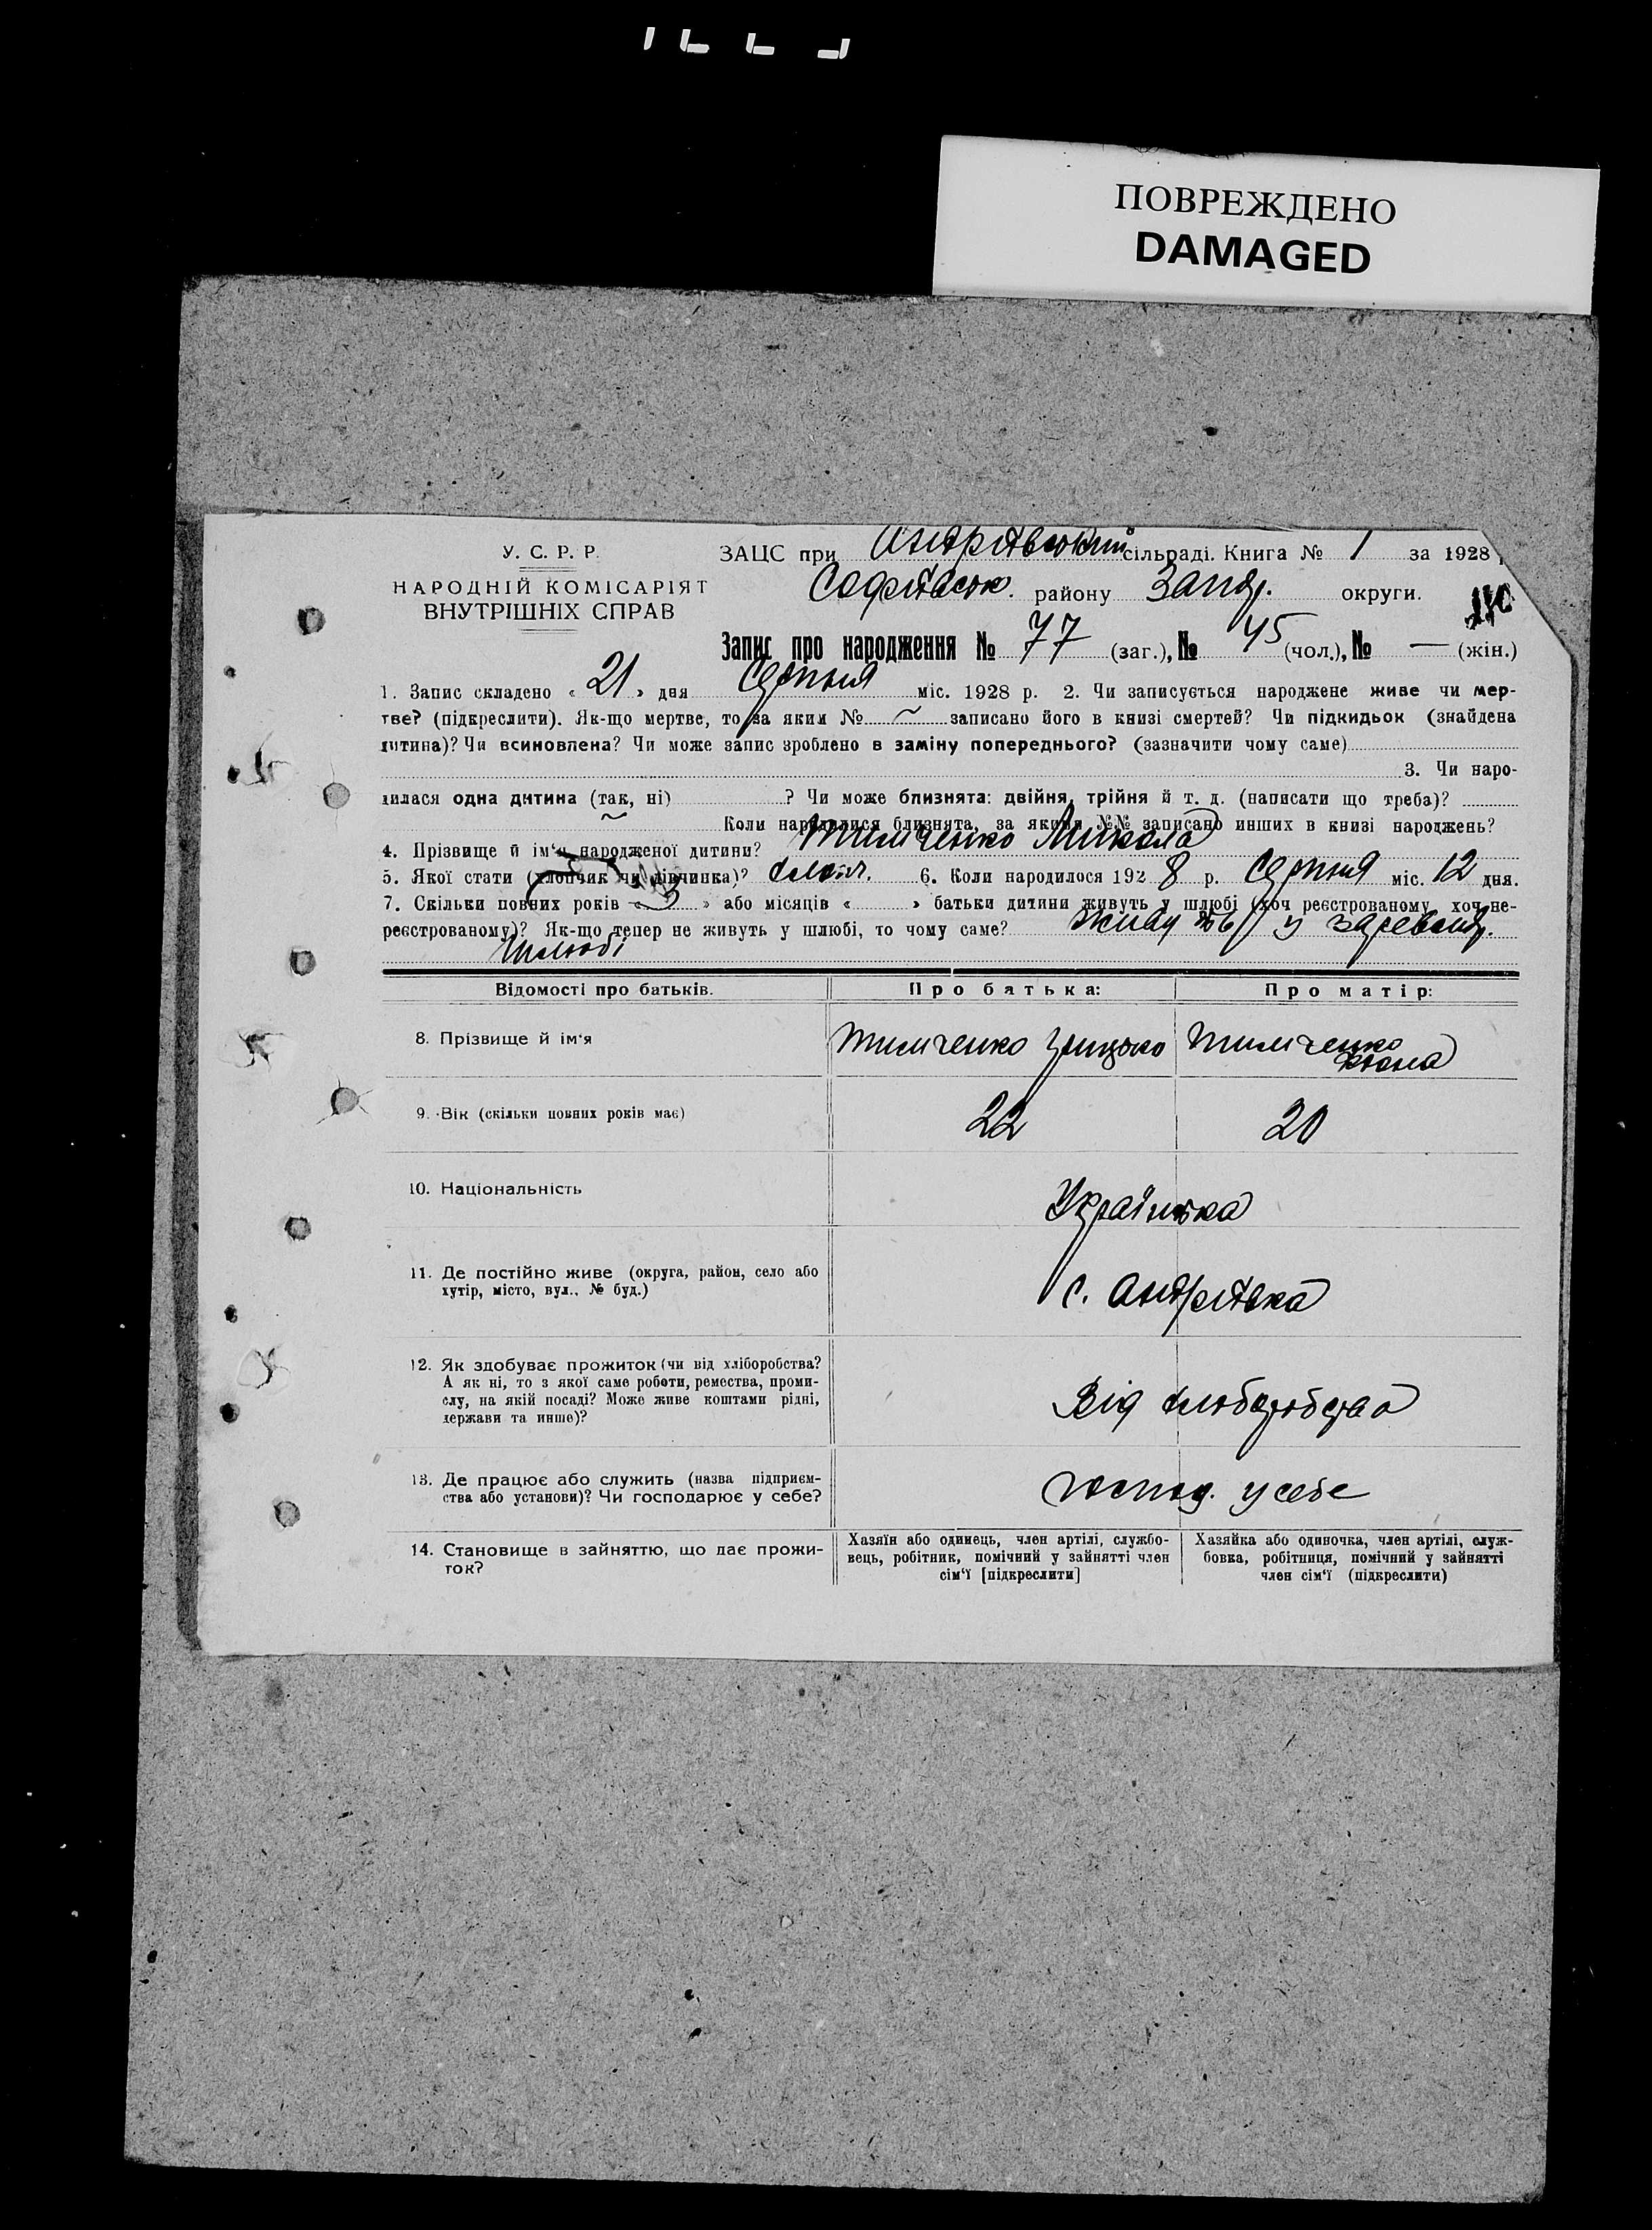 ПОВРЕЖДЕНО
DAMAGED
У. С. Р. Р.
НАРОДНІЙ КОМІСАРІЯТ
ВНУТРІШНІХ СПРАВ
ЗАЦС при Андріївський сільраді. Книга № 1 за 1928
Софіївськ. району Запор. округи.
Запис про народження № 77 (заг.), № 45 (чол.), № — (жін.)
1. Запис складено « 21 » дня Серпня міс. 1928 р. 2. Чи записується народжене живе чи мер-
тве? (підкреслити). Як-що мертве, то за яким № ~ записано його в книзі смертей? Чи підкидьок (знайдена
дитина)? Чи всиновлена? Чи може запис зроблено в заміну попереднього? (зазначити чому саме)
3. Чи наро-
дилася одна дитина (так, ні) ? Чи може близнята: двійня, трійня й т. д. (написати що треба)?
~ Коли народилися близнята, за якими №№ записано инших в книзі народжень?
4. Прізвище й ім‘я народженої дитини? Тимченко Микола
5. Якої стати (хлопчик чи дівчинка)? хлоп. 6. Коли народилося 192 8 р. Серпня міс. 12 дня.
7. Скільки повних років « 3 » або місяців « » батьки дитини живуть у шлюбі (хоч реєстрованому, хоч не-
реєстрованому)? Як-що тепер не живуть у шлюбі, то чому саме? Живуть у
шлюбі
Відомості про батьків. Про батька: Про матір:
8. Прізвище й ім‘я Тимченко Грицько Тимченко
9. Вік (скільки повних років має) 22 20
10. Національність Українська
11. Де постійно живе (округа, район, село або
хутір, місто, вул., № буд.) с. Андріївка
12. Як здобуває прожиток (чи від хліборобства?
А як ні, то з якої саме роботи, ремества, проми-
слу, на якій посаді? Може живе коштами рідні,
держави та инше)? Від хліборобства
13. Де працює або служить (назва підприєм-
ства або установи)? Чи господарює у себе? господ. у себе
14. Становище в зайняттю, що дає прожи-
ток?
Хазяїн або одинець, член артілі, службо-
вець, робітник, помічний у зайнятті член
сім‘ї [підкреслити]
Хазяйка або одиночка, член артілі, служ-
бовка, робітниця, помічний у зайнятті
член сім‘ї (підкреслити)